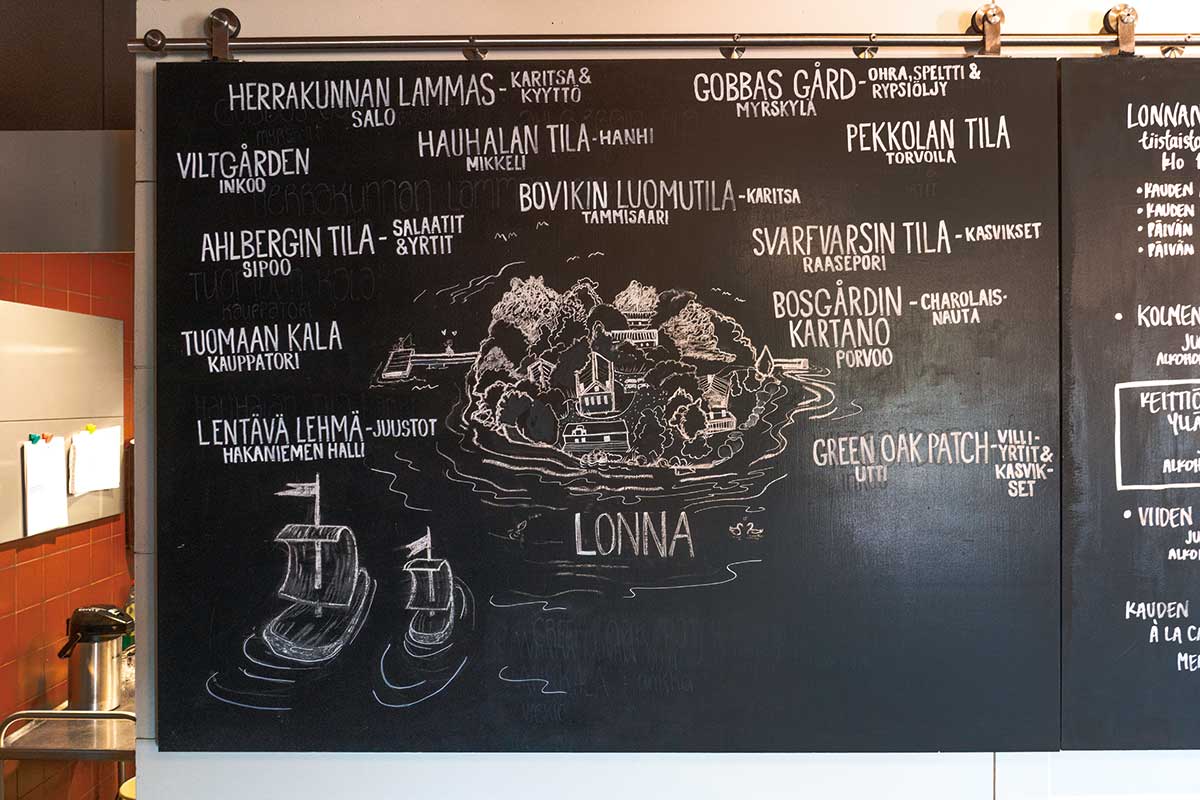 HERRAKUNNAN LAMMAS - KARITSA &
KYYTTÖ
SALO
GOBBAS GÅRD - OHRA, SPELTTI &
RYPSIÖLJY
MYRSKYLÄ
HAUHALAN TILA - HANHI
MIKKELI
PEKKOLAN TILA
TORVOILA
VILTGÅRDEN
INKOO
BOVIKIN LUOMUTILA - KARITSA
TAMMISAARI
AHLBERGIN TILA - SALAATIT
& YRTIT
SIPOO
SVARFVARSIN TILA - KASVIKSET
RAASEPORI
BOSGÅRDIN - CHAROLAIS-
NAUTA
KARTANO
PORVOO
TUOMAAN KALA
KAUPPATORI
LENTÄVÄ LEHMÄ - JUUSTOT
HAKANIEMEN HALLI
GREEN OAK PATCH - VILLI-
YRTIT &
KASVIK-
SET
UTTI
LONNA
LONNAN
tiistaista
klo
• KAUDEN
• KAUDEN
• PÄIVÄN
• PÄIVÄN
• KOLMEN
JU
ALKOHO
KEITTIÖ
YLLÄ
ALKO
• VIIDEN
JU
ALKO
KAUDEN
À LA CA
ME